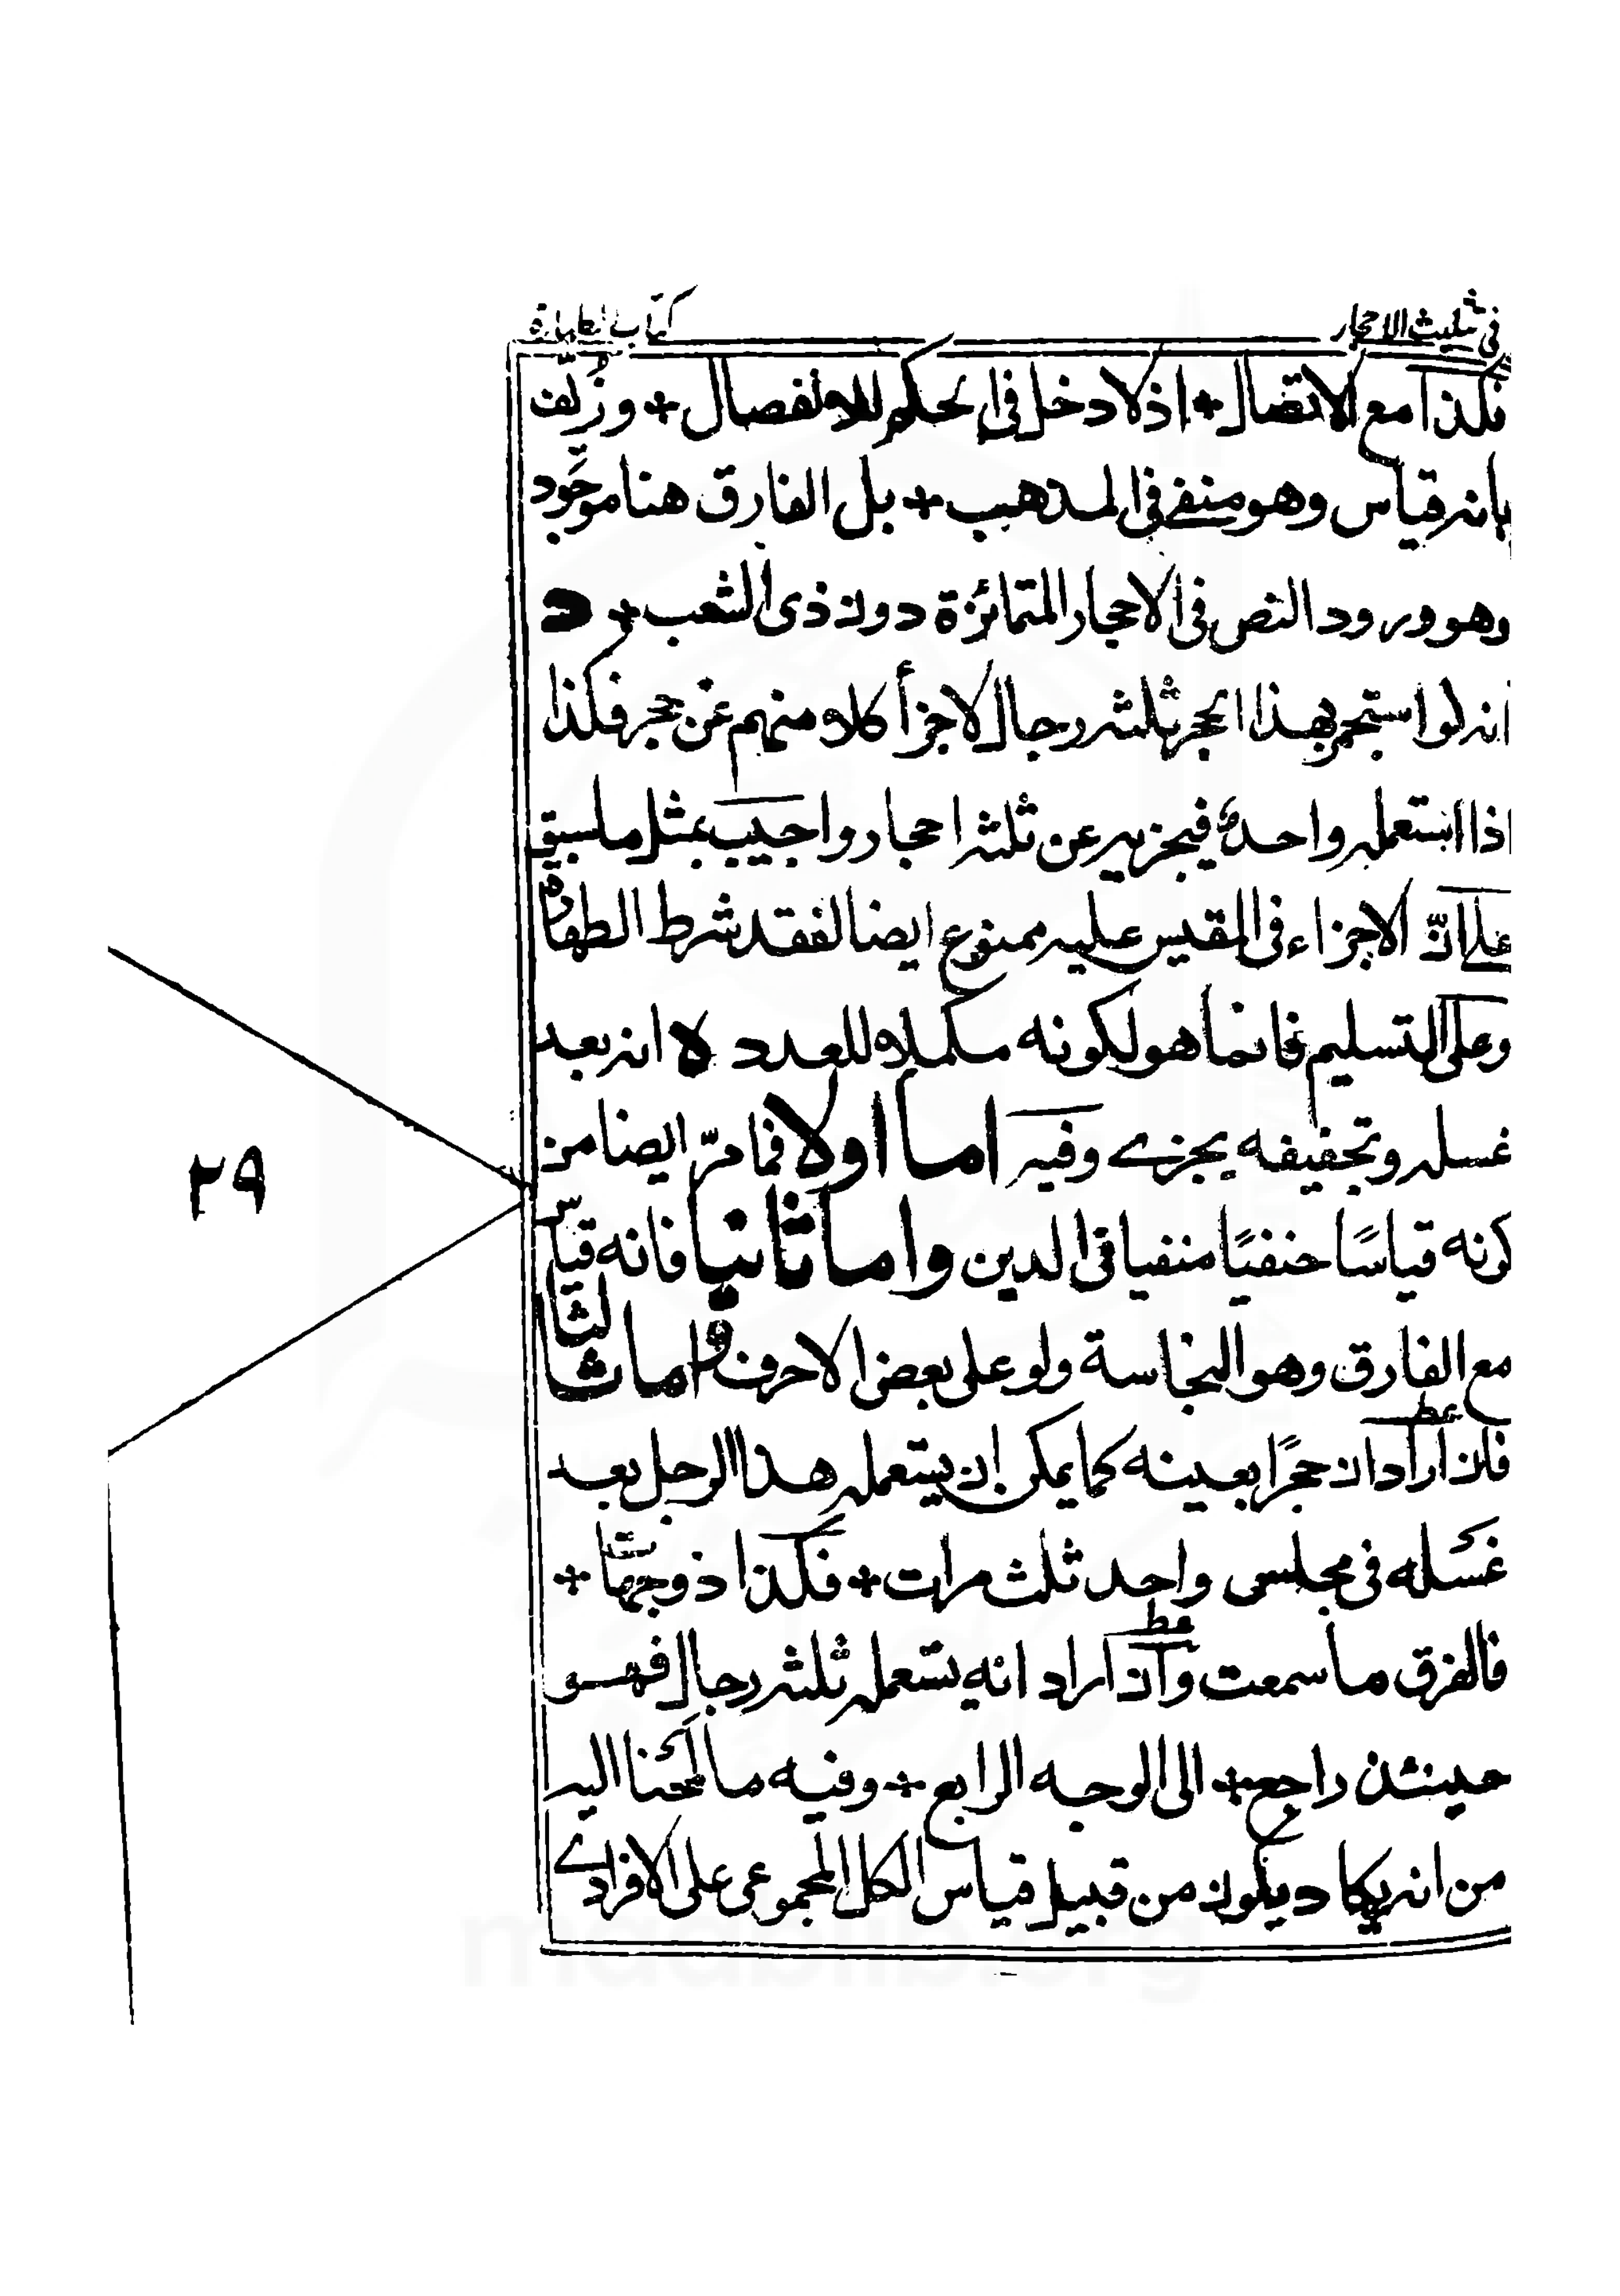 في تثليث الاحجار
كتاب الطهارة
فكذا مع الاتصال + اذ لا دخل في الحكم للانفصال + وزُيّف
بانه قياس وهو منفي في المذهب + بل الفارق هنا موجود
وهو ورود النص في الاحجار المتمائزة دون ذى الشعب + د
انه لو استجمر بهذا الحجر ثلثه رجال لاجزأ كلا منهم عن حجر فكذا
اذا استعمله واحد فيجزيه عن ثلثه احجار واجيب بمثل ما سبق
على انّ الاجزاء في المقيس عليه ممنوع ايضا لفقد شرط الطهارة
وعلى التسليم فانما هو لكونه مكملا للعدد ه انه بعد
غسله وتجفيفه يجزے وفيه اما اولا فما مرّ ايضا من
كونه قياسًا حنفيًا منفيا فى الدين واما ثانيا فانه قياس
مع الفارق وهو النجاسة ولو على بعض الاحرف واما ثالثا
فلان اراد ان حجرًا بعينه كما يمكن ان يستعمله هذا الرجل بعد
غسله فى مجلس واحد ثلث مرات + فكذا ذو جهات +
فالفرق ما سمعت وان اراد انه يستعمله ثلثه رجال فهو
حينئذ راجع + الى الوجه الرابع + وفيه ما لمحنا اليه
من انه يكاد يكون من قبيل قياس الكل المجموعى على الافرادے
٢٩